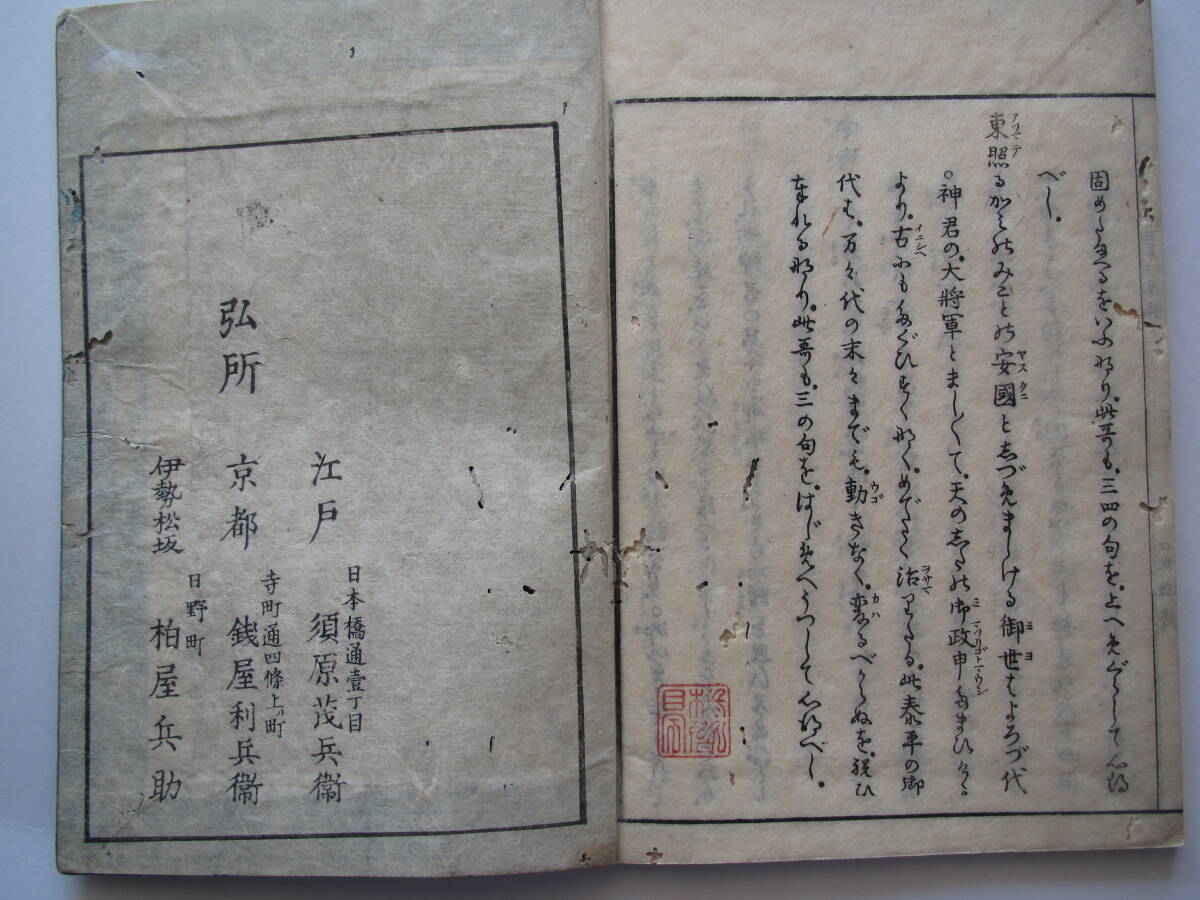 固めたまへるをいふなり。此哥も。三四の句を。上へめぐらして心得
べし。
東照るかみのみことの安國としづめましける御世はよろづ代
○神君の。大將軍とましまして。天の下の御政申たまひける
より。古にもたぐひすくなく。めでたく治まりたる。此泰平の御
代は。万々代の末々までも。動きなく。変るべからぬを。祝ひ
奉れるなり。此哥も。三の句を。はじめへうつして心得べし。
弘所
江戸 日本橋通壹丁目 須原茂兵衞
京都 寺町通四條上ル町 錢屋利兵衞
伊勢松坂 日野町 柏屋兵助